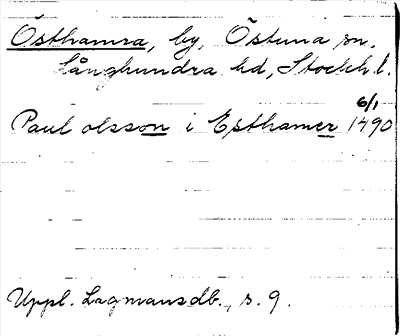 Östhamra, by, Östuna sn.
Långhundra hd, Stockh. l.
6/1
Paul olsson i Esthamer 1490
Uppl. Lagmansdb., s. 9.